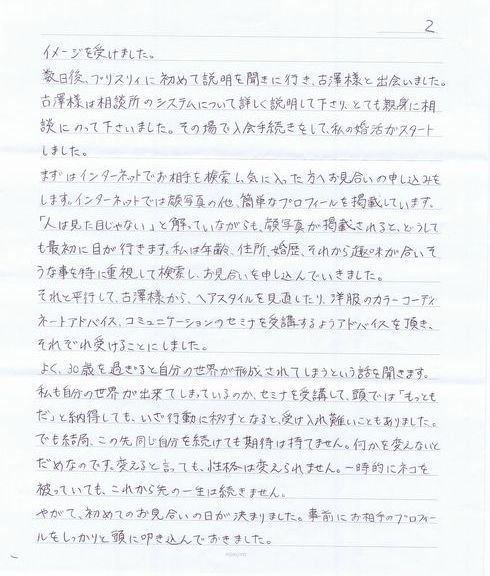 2
イメージを受けました。
数日後、ブリスリィに初めて説明を聞きに行き、古澤様と出会いました。
古澤様は相談所のシステムについて詳しく説明して下さり、とても親身に相
談にのって下さいました。その場で入会手続きをして、私の婚活がスタート
しました。
まずはインターネットでお相手を検索し、気に入った方へお見合いの申し込みを
します。インターネットでは顔写真の他、簡単なプロフィールを掲載しています。
「人は見た目じゃない」と解っていながらも、顔写真が掲載されると、どうして
も最初に目が行きます。私は年齢、住所、婚歴、それから趣味が合いそ
うな事を特に重視して検索し、お見合いを申し込んでいきました。
それと平行して、古澤様から、ヘアスタイルを見直したり、洋服のカラーコーディ
ネートアドバイス、コミュニケーションのセミナを受講するようアドバイスを頂き、
それぞれ受けることにしました。
よく、30歳を過ぎると自分の世界が形成されてしまうという話を聞きます。
私も自分の世界が出来てしまっているのか、セミナを受講して、頭では「もっとも
だ」と納得しても、いざ行動に移すとなると、受け入れ難いこともありました。
でも結局、この先同じ自分を続けても期待は持てません。何かを変えないと
だめなのです。変えると言っても、性格は変えられません。一時的にネコを
被っていても、これから先の一生は続きません。
やがて、初めてのお見合いの日が決まりました。事前にお相手のプロフィー
ルをしっかりと頭に叩き込んでおきました。